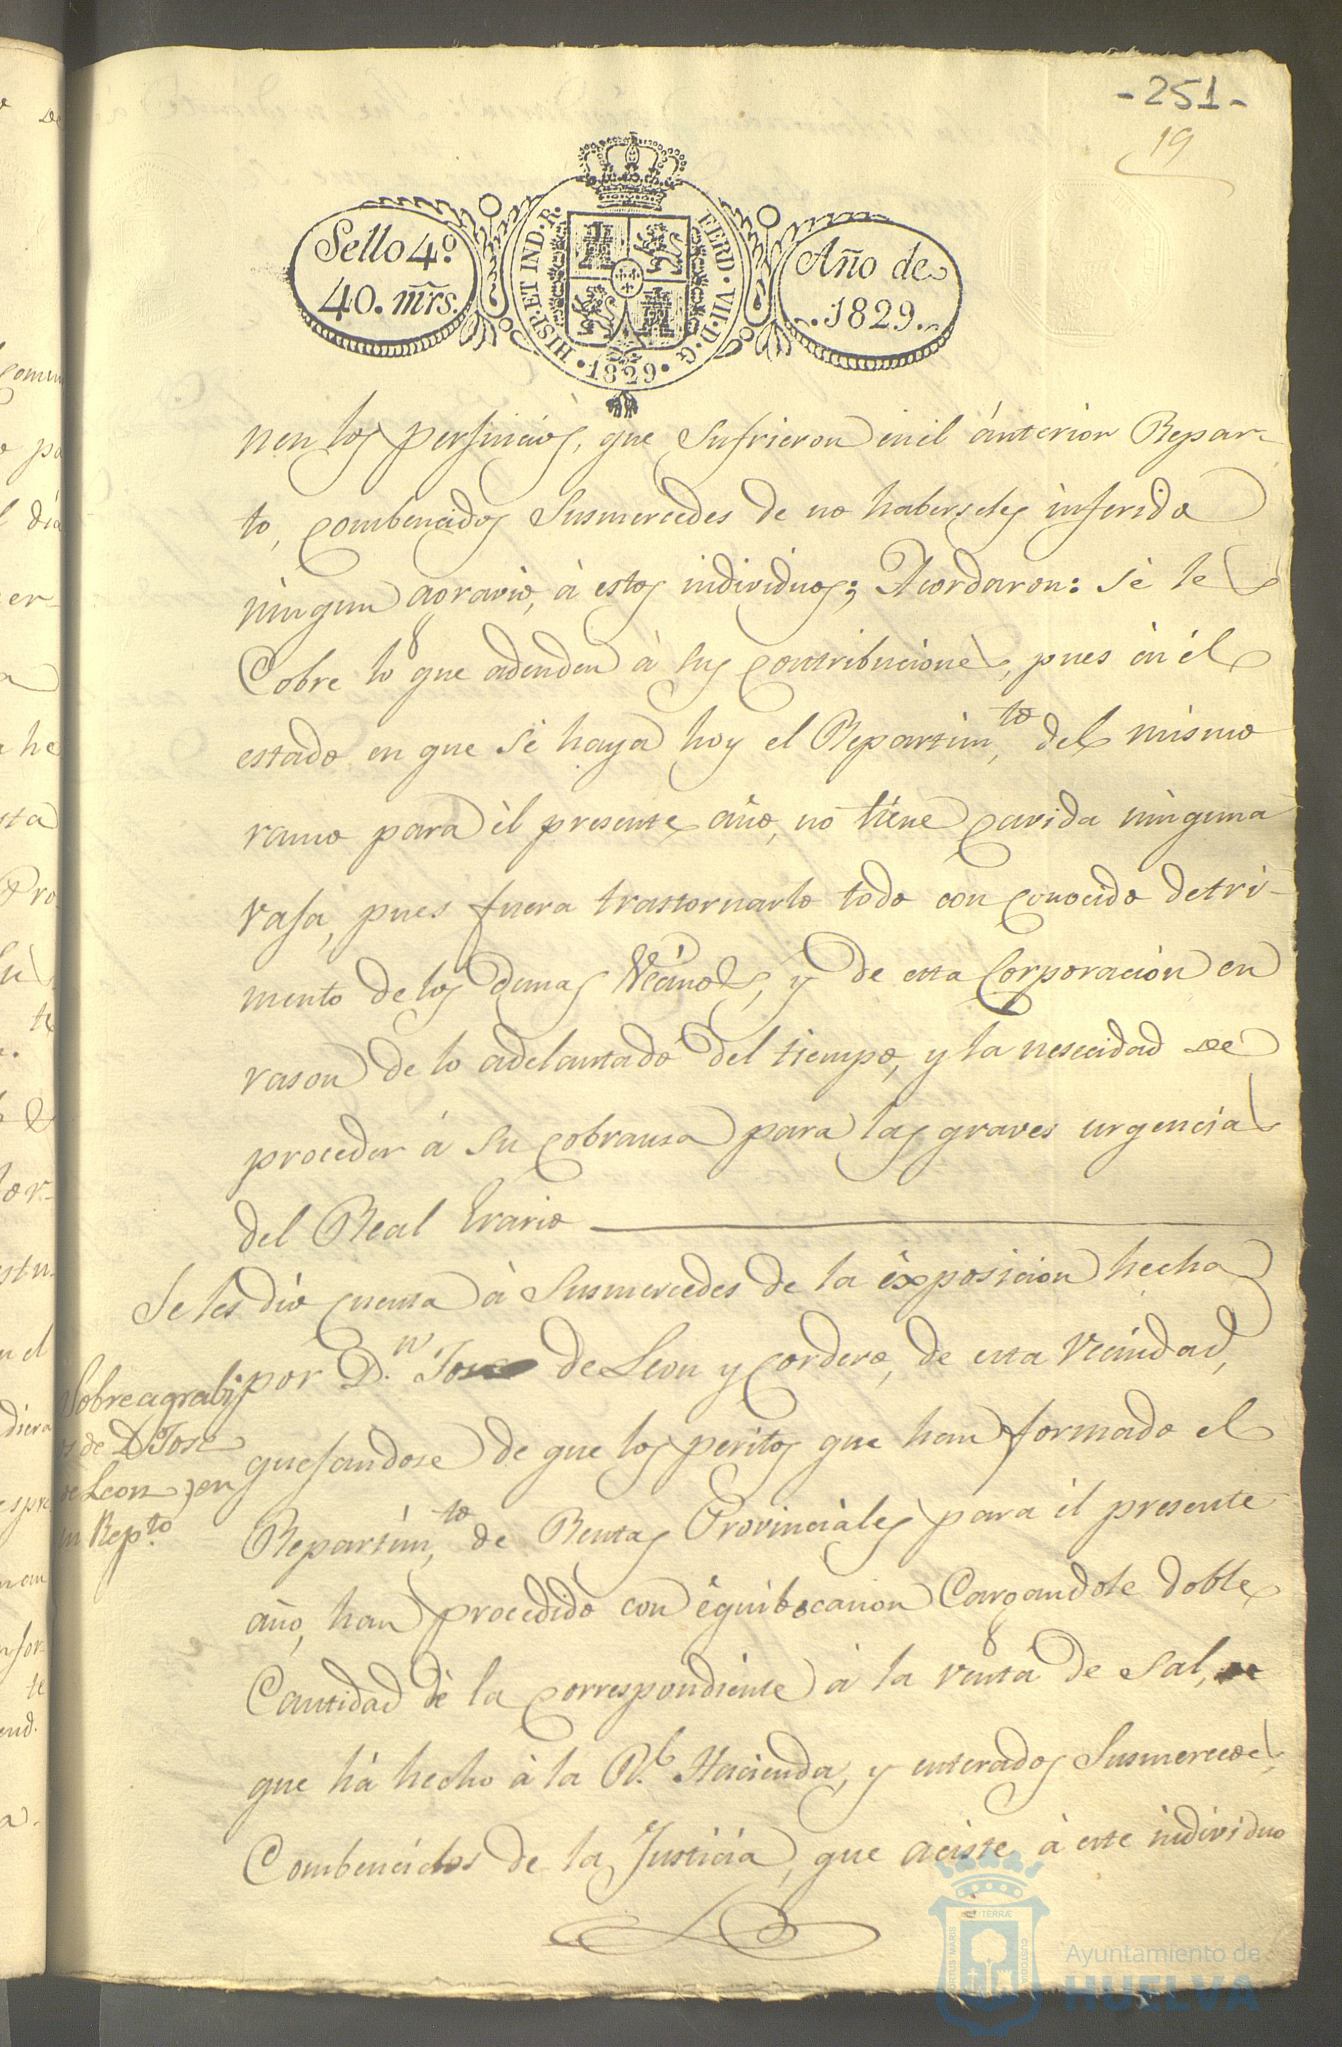 -251-
19
Sello 4º
40. mrs.
HISP. ET IND. R.
FERD. VII. D. G.
1829
Año de
1829.
nen los perjuicios, que sufrieron en el ánterior Repar-
to, combencidos Susmercedes de no haberseles inferido
ningun agravio, á estos individuos; Acordaron: se le
Cobre lo que adeuden à sus contribuciones, pues en él
estado en que se haya hoy el Repartim.to del mismo
ramo para él presente año, no tiene cavida ninguna
vaja, pues fuera trastornarlo todo con conocido detri-
mento de los demas Vecinos, y de esta Corporacion en
rason de lo adelantado del tiempo, y la nesecidad de
proceder á su cobransa para las graves urgencias
del Real Erario
Se les dio cuenta à Susmercedes de la exposicion hecha
por D.n Jose de Leon y Cordero, de esta Vecindad,
quejandose de que los peritos que han formado el
Repartim.to de Rentas Provinciales para él presente
año, han procedido con equibocacion Cargandole doble
Cantidad de la correspondiente à la venta de sal,
que há hecho à la Rl. Hacienda, y enterados Susmercedes,
Combencidos de la Justicia, que aciste à este individuo
Sobre agrabi
os de D Jose
de Leon en
un Rep.to
Ayuntamiento de
HUELVA